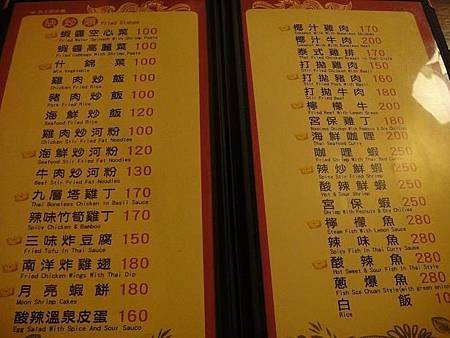 熱炒類 Fried Dishes
蝦醬空心菜 100
Fried Water Spinach With Shrimp Paste
蝦醬高麗菜 100
Fried Cabbage With Shrimp Paste
什錦菜 100
Mix Vegetable
雞肉炒飯 100
Chicken Fried Rice
豬肉炒飯 100
Pork Fried Rice
海鮮炒飯 120
Seafood Fried Rice
雞肉炒河粉 100
Chicken Stir Fried Fat Noodles
海鮮炒河粉 120
Seafood Stir Fried Fat Noodles
牛肉炒河粉 130
Beef Stir Fried Fat Noodles
九層塔雞丁 170
Thai Boneless Chicken In Basil Sauce
辣味竹筍雞丁 170
Spicy Chicken & Bamboo
三味炸豆腐 150
Fried Tofu In Thai Sauce
南洋炸雞翅 180
Fried Chicken Wings With Thai Dip
月亮蝦餅 180
Moon Shrimp Cakes
酸辣溫泉皮蛋 160
Egg Salad With Spice And Sour Sauce
椰汁雞肉 170
Coconut Milk With Boneless Chicken
椰汁牛肉 200
Coconut Milk With Beef
泰式雞排 170
打拋雞肉 150
Stir Fried Chicken With Basil
打拋豬肉 160
Stir Fried Pork With Basil
打拋牛肉 180
Stir Fried Beef
檸檬牛 200
Stir Fried Beef With Lemon Grass
宮保雞丁 180
Boneless Chicken With Peanuts & Dry Chilies
海鮮咖哩 200
Thai Seafood Curry
咖哩蝦 250
Fried Shrimp With Thai Red Curry
辣炒鮮蝦 250
Spicy Stir Fried Shrimp
酸辣鮮蝦 250
Hot & Sour Shrimp
宮保蝦 250
Shrimp With Peanuts & Dry Chilies
檸檬魚 280
Steam Fish With Lemon Sauce
辣味魚 280
Spicy Fish In Thai Curry Sauce
酸辣魚 280
Hot Sweet & Sour Fish In Thai Style
蔥爆魚 280
Fish Sze Chuan Style(with green onion)
白飯 10
Rice